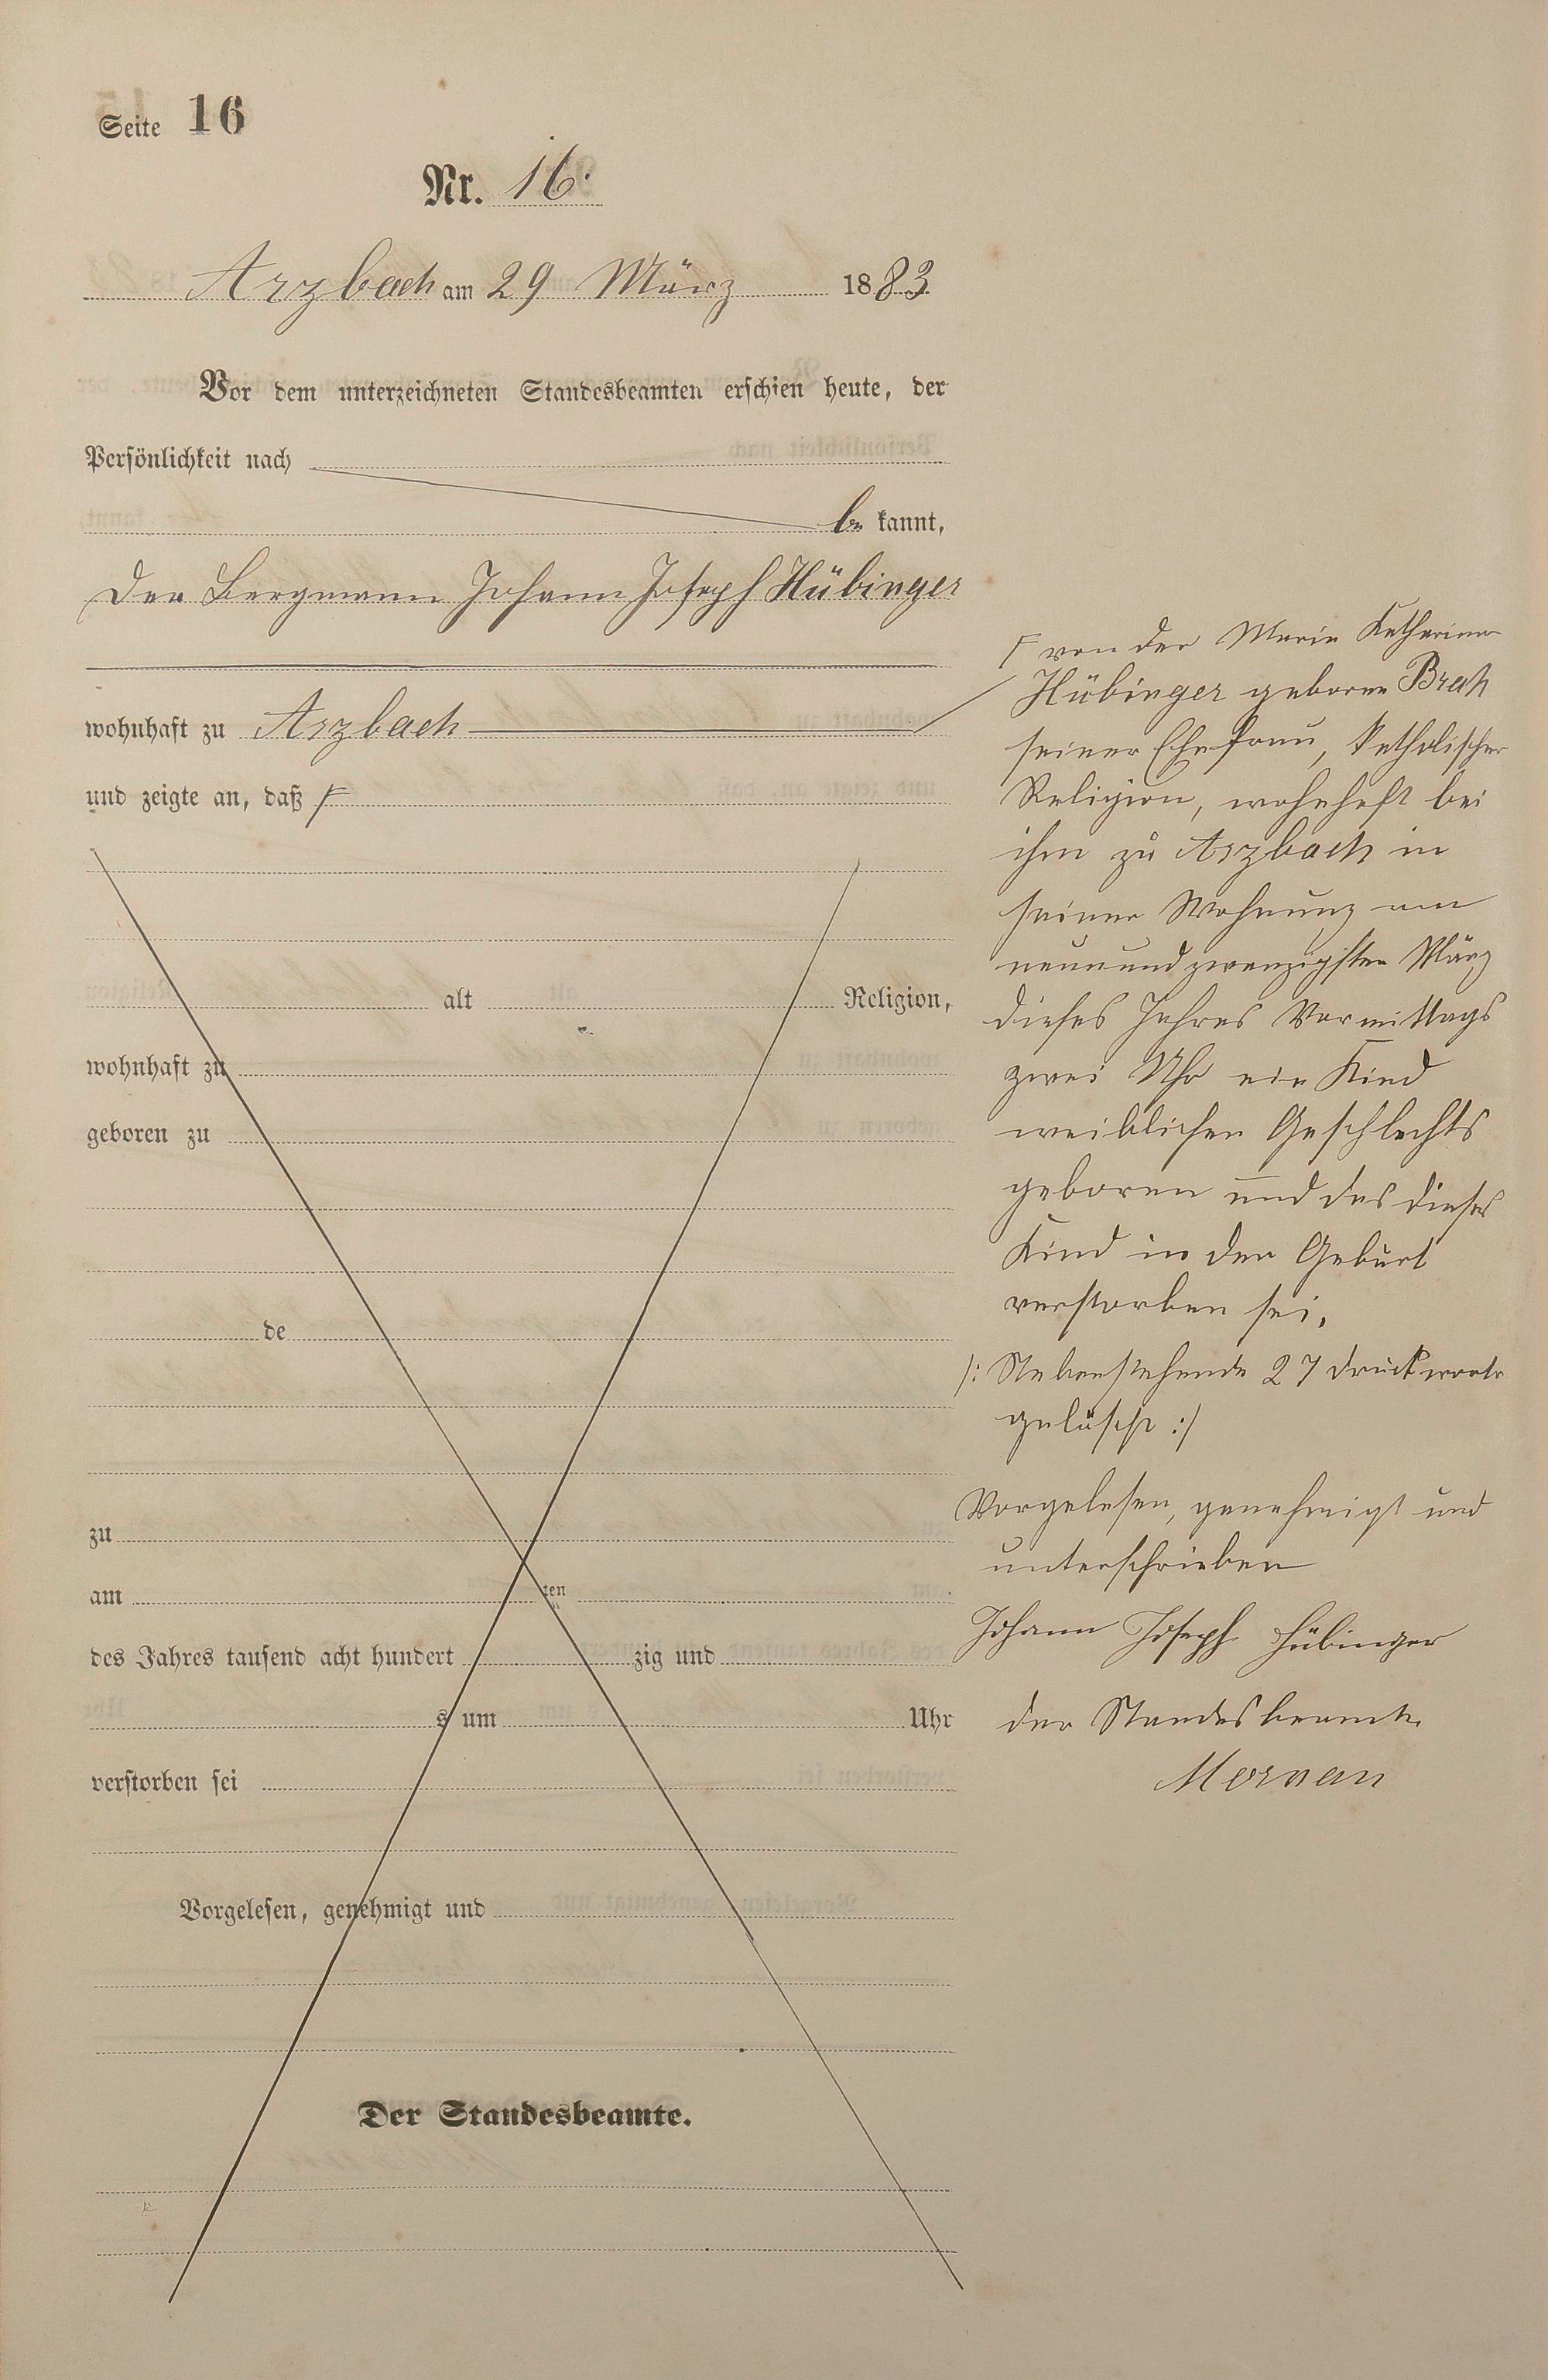 Seite 16
Nr. 16.
Arzbach am 29 März 1883
Vor dem unterzeichneten Standesbeamten erschien heute, der
Persönlichkeit nach
be kannt,
der Bergmann Johann Joseph Hübinger
wohnhaft zu Arzbach
und zeigte an, daß F
alt Religion,
wohnhaft zu
geboren zu
de
zu
am ten
des Jahres tausend acht hundert zig und
s um Uhr
verstorben sei
Vorgelesen, genehmigt und
Der Standesbeamte.
F von der Maria Katharina
Hübinger geborne Brah
seiner Ehefrau, katholischer
Religion, wohnhaft bei
ihm zu Arzbach in
seiner Wohnung am
neunundzwanzigsten März
dieses Jahres Vormittags
zwei Uhr ein Kind
weiblichen Geschlechts
geboren und das dieses
Kind in der Geburt
verstorben sei.
/: Nebenstehende 27 Druckworte
gelöscht :/
Vorgelesen, genehmigt und
unterschrieben
Johann Joseph Hübinger
der Standesbeamte